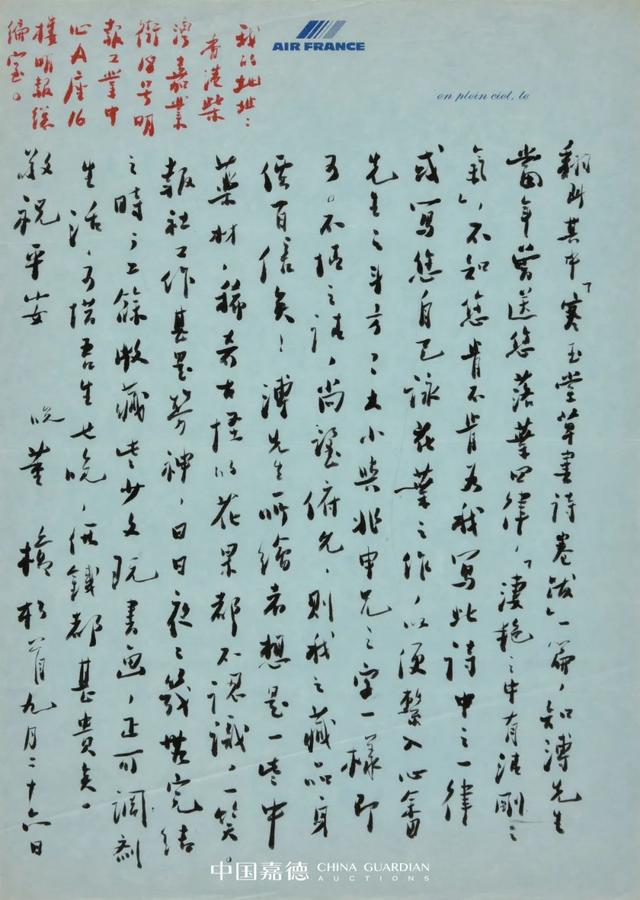 AIR FRANCE
en plein ciel, le
翻出其中「寒玉堂草書詩卷跋」一篇，知溥先生
當年嘗送您落葉四律，「淒艷之中有清剛之
氣」，不知您肯不肯為我寫此詩中之一律
或寫您自己詠花葉之作，以便繫入心畬
先生之斗方？大小與兆申兄之字一樣即
可。不情之請，尚望俯允，則我之藏品身
價百倍矣！溥先生所繪者想是一些中
藥材，稀奇古怪的花果都不認識，一笑。
報社工作甚是勞神，日日夜夜幾無完結
之時，工餘收藏些少文玩書画，正可調劑
生活，可惜吾生也晚，價錢都甚貴矣。
敬祝平安
晚董橋 九月二十六日
我的地址：
香港柴
灣嘉業
街18号明
報工業中
心A座16
樓明報總
編室。
中国嘉德 CHINA GUARDIAN
AUCTIONS